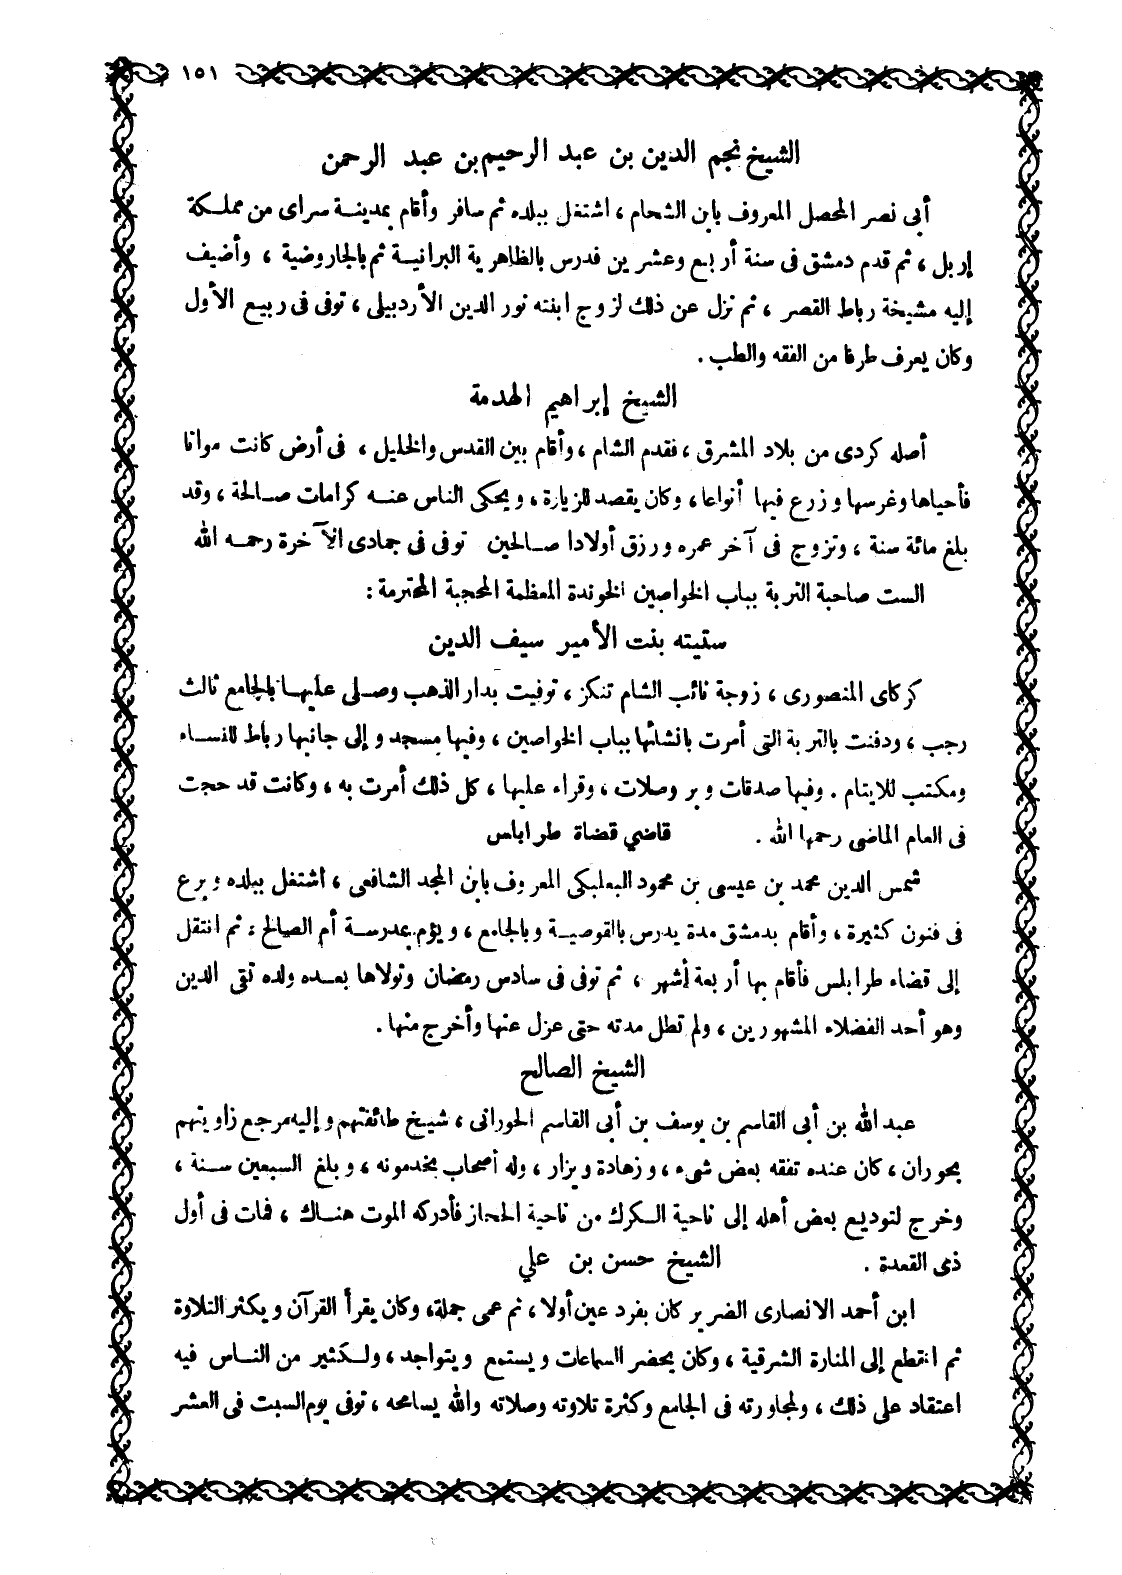 ١٥١
الشيخ نجم الدين بن عبد الرحيم بن عبد الرحمن
أبى نصر المحصل المعروف بابن الشحام ، اشتغل ببلده ثم سافر وأقام بمدينة سراى من مملكة
إربل ، ثم قدم دمشق فى سنة أربع وعشرين فدرس بالظاهرية البرانية ثم بالجاروضية ، وأضيف
إليه مشيخة رباط القصر ، ثم نزل عن ذلك لزوج ابنته نور الدين الأردبيلى ، توفى فى ربيع الأول
وكان يعرف طرفا من الفقه والطب .
الشيخ إبراهيم الهدمة
أصله كردى من بلاد المشرق ، فقدم الشام ، وأقام بين القدس والخليل ، فى أرض كانت مواتا
فأحياها وغرسها وزرع فيها أنواعا ، وكان يقصد للزيارة ، ويحكى الناس عنه كرامات صالحة ، وقد
بلغ مائة سنة ، وتزوج فى آخر عمره ورزق أولادا صالحين توفى فى جمادى الآخرة رحمه الله
الست صاحبة التربة بباب الخواصين الخوندة المعظمة المحجبة المحترمة :
ستيته بنت الأمير سيف الدين
كركاى المنصورى ، زوجة نائب الشام تنكز ، توفيت بدار الذهب وصلى عليها بالجامع ثالث
رجب ، ودفنت بالتربة التى أمرت بانشائها بباب الخواصين ، وفيها مسجد وإلى جانبها رباط للنساء
ومكتب للايتام . وفيها صدقات وبر وصلات ، وقراء عليها ، كل ذلك أمرت به ، وكانت قد حجت
فى العام الماضى رحمها الله . قاضي قضاة طرابلس
شمس الدين محمد بن عيسى بن محمود البعلبكى المعروف بابن المجد الشافعى ، اشتغل ببلده وبرع
فى فنون كثيرة ، وأقام بدمشق مدة يدرس بالقوصية وبالجامع ، ويؤم بمدرسة أم الصالح ، ثم انتقل
إلى قضاء طرابلس فأقام بها أربعة أشهر ، ثم توفى فى سادس رمضان وتولاها بعده ولده تقى الدين
وهو أحد الفضلاء المشهورين ، ولم تطل مدته حتى عزل عنها وأخرج منها .
الشيخ الصالح
عبد الله بن أبى القاسم بن يوسف بن أبى القاسم الحورانى ، شيخ طائفتهم وإليه مرجع زاويتهم
بحوران ، كان عنده تفقه بعض شىء ، وزهادة ويزار ، وله أصحاب يخدمونه ، وبلغ السبعين سنة ،
وخرج لتوديع بعض أهله إلى ناحية الكرك من ناحية الحجاز فأدركه الموت هناك ، فمات فى أول
ذى القعدة . الشيخ حسن بن علي
ابن أحمد الانصارى الضرير كان بفرد عين أولا ، ثم عمى جملة، وكان يقرأ القرآن ويكثر التلاوة
ثم انقطع إلى المنارة الشرقية ، وكان يحضر السماعات ويستمع ويتواجد ، ولكثير من الناس فيه
اعتقاد على ذلك ، ولمجاورته فى الجامع وكثرة تلاوته وصلاته والله يسامحه ، توفى يوم السبت فى العشر